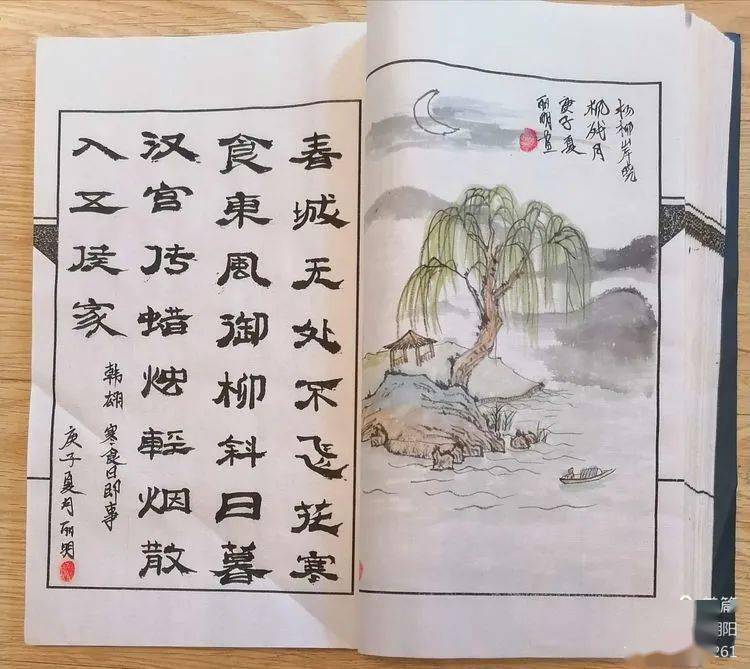 杨柳岸晓
残月
庚子夏
丽明画
春城无处不飞花寒
食東風御柳斜日暮
汉宫传蜡烛輕烟散
入五侯家
韩翃 寒食日即事
庚子夏月丽明
篇
阳
261